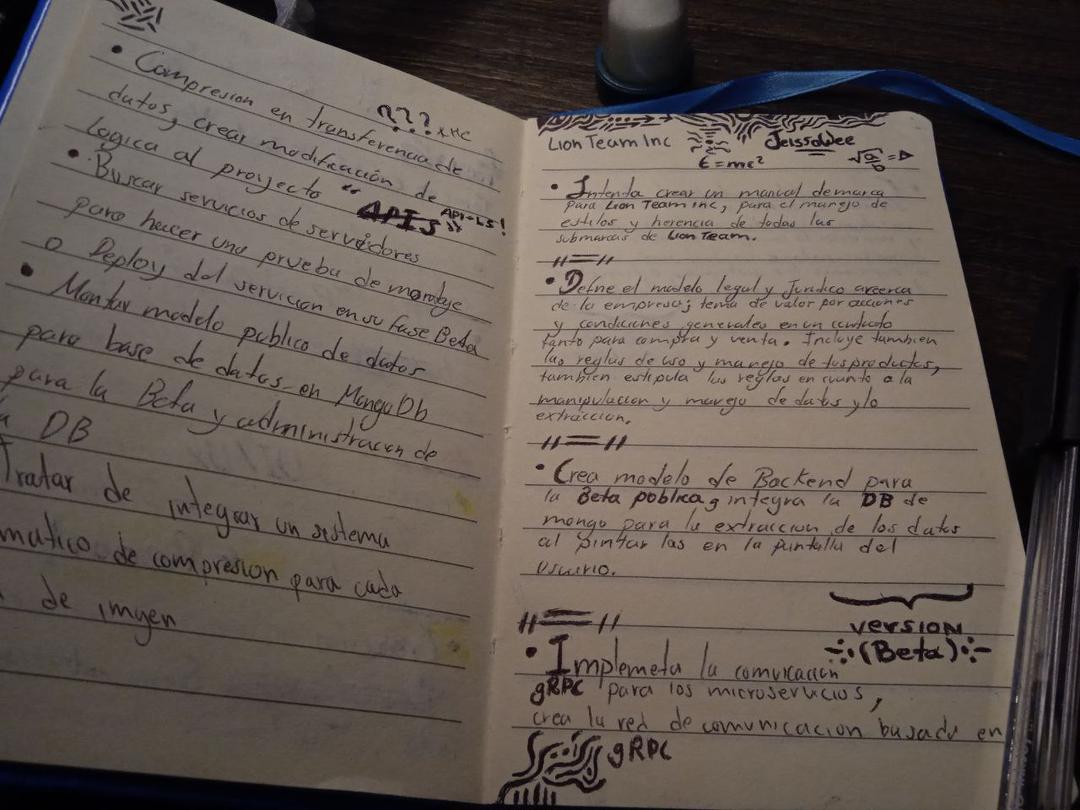 ???
• Compresion en transferencia de
datos, crear modificación de
logica al proyecto "API-LS!"
• Buscar servicios de servidores
para hacer una prueba de montaje
o Deploy del servicion en su fase Beta
• Montar modelo publico de datos
para base de datos en MongoDb
para la Beta y administracion de
DB
Tratar de integrar un sistema
matico de compresion para cada
de imgen
Lion Team Inc
JeissoWee
E=mc²
√a/b =
• Intenta crear un manual de marca
para Lion Team inc, para el manejo de
estilos y herencia de todas las
submarcas de Lion Team.
• Define el modelo legal y Juridico acerca
de la empresa; tema de valor por acciones
y condiciones generales en un contrato
tanto para compra y venta. Incluye tambien
las reglas de uso y manejo de tus productos,
tambien estipula las reglas en cuanto a la
manipulacion y manejo de datos y/o
extraccion.
• Crea modelo de Backend para
la Beta poblica, integra la DB de
mongo para la extraccion de los datos
al pintar las en la pantalla del
usuario.
version
(Beta)
• Implemeta la comunicacion
gRPC para los microservicios,
crea la red de comunicacion basada en
gRPC